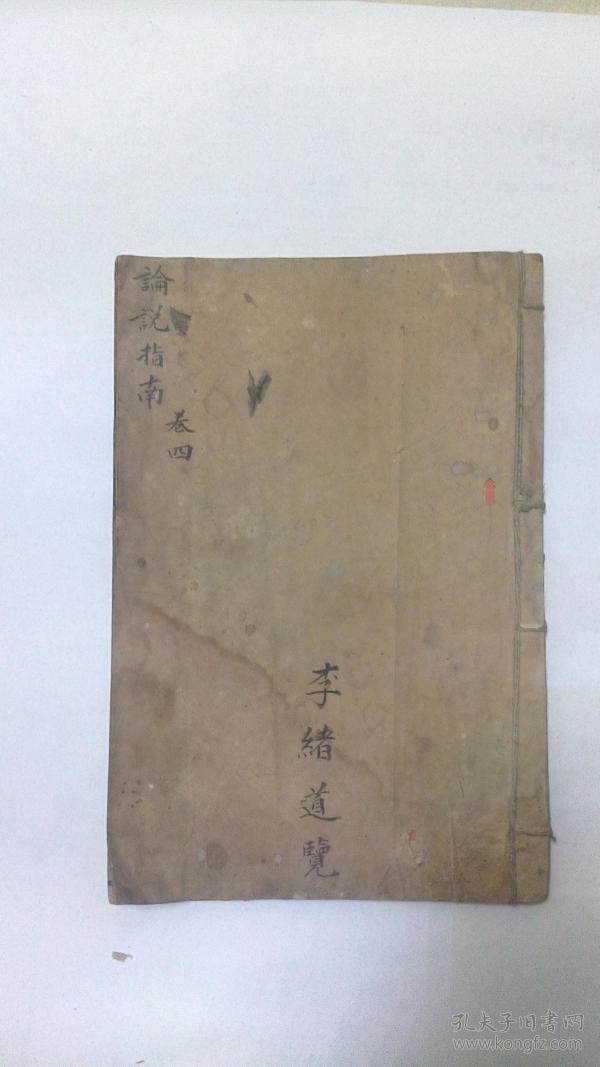 論說指南
卷四
李緒道覽
孔夫子旧书网
www.kongfz.com